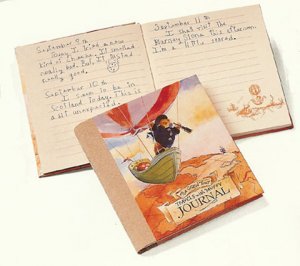 September 9th
Today I tried a new
kind of cheese. It smelled
really bad. But, it tasted
pretty good.
September 10th
I seem to be in
Scotland Today. This is
a bit unexpected.
September 11th
I shall visit the
Blarney Stone this afternoon.
I'm a little scared.
TRAVELS WITH
JOURNAL